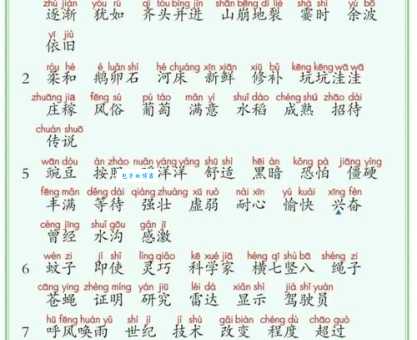 zhú jiàn yóu rú qí tóu bìng jìn shān bēng dì liè shà shí yú bō
逐渐 犹如 齐头并进 山崩地裂 霎时 余波
yī jiù
依旧
róu hé é luǎn shí hé chuáng xīn xiān xiū bǔ kēng kēng wā wā
2 柔和 鹅卵石 河床 新鲜 修补 坑坑洼洼
zhuāng jia fēng sú pú táo mǎn yì shuǐ dào chéng shú zhāo dài
庄稼 风俗 葡萄 满意 水稻 成熟 招待
chuán shuō
传说
wān dòu àn yáng yáng shū shì hēi àn kǒng pà jiāng yìng
5 豌豆 按 洋洋 舒适 黑暗 恐怕 僵硬
fēng mǎn děng dài qiáng zhuàng xū ruò nài xīn yú kuài xīng fèn
丰满 等待 强壮 虚弱 耐心 愉快 兴奋
céng jīng shuǐ gōu gǎn jī
曾经 水沟 感激
wén zi jí shǐ líng qiǎo kē xué jiā héng qī shù bā shéng zi
6 蚊子 即使 灵巧 科学家 横七竖八 绳子
cāng ying zhèng míng yán jiū léi dá xiǎn shì jià shǐ yuán
苍蝇 证明 研究 雷达 显示 驾驶员
hū fēng huàn yǔ shì jì jì shù gǎi biàn chéng dù chāo guò
7 呼风唤雨 世纪 技术 改变 程度 超过